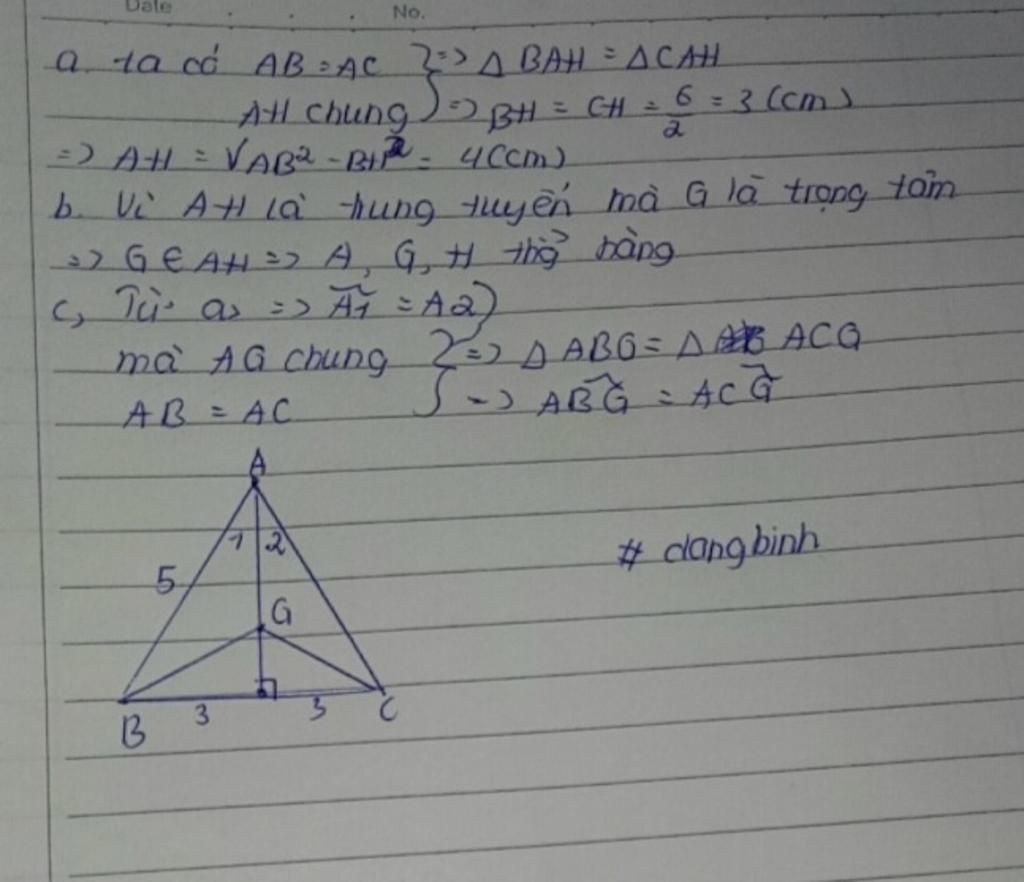 Date No.
a. ta có AB = AC } => Δ BAH = Δ CAH
AH chung } => BH = CH = 6/2 = 3 (cm)
=> AH = √AB² - BH² = 4 (cm)
b. Vì AH là trung tuyến mà G là trọng tâm
=> G ∈ AH => A, G, H thẳng hàng
c, Từ a, => Â1 = A2 }
mà AG chung } => Δ ABG = Δ ACG
AB = AC } => AB̂G = AĈG
A
1 2
5
G
B 3 3 C
# dangbinh